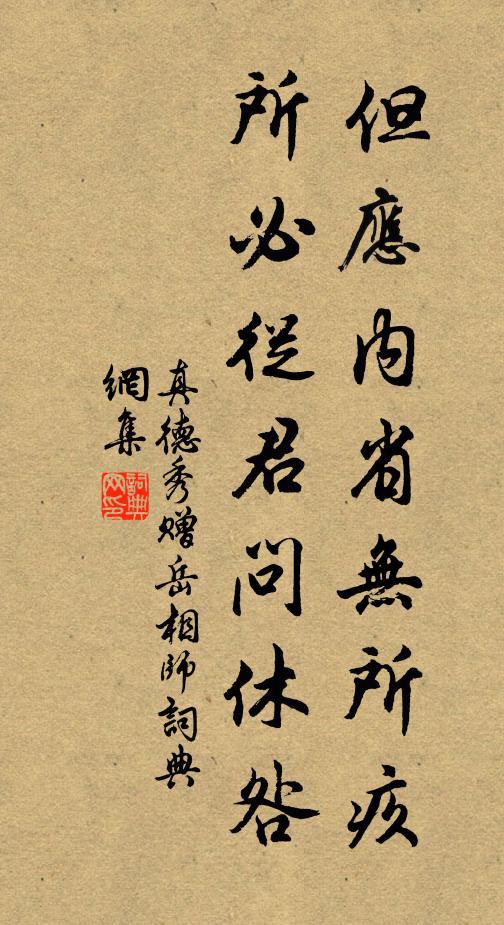 但應内省無所疚
所必從君問休咎
真德秀贈岳相師詞典
網集
詞典
网印